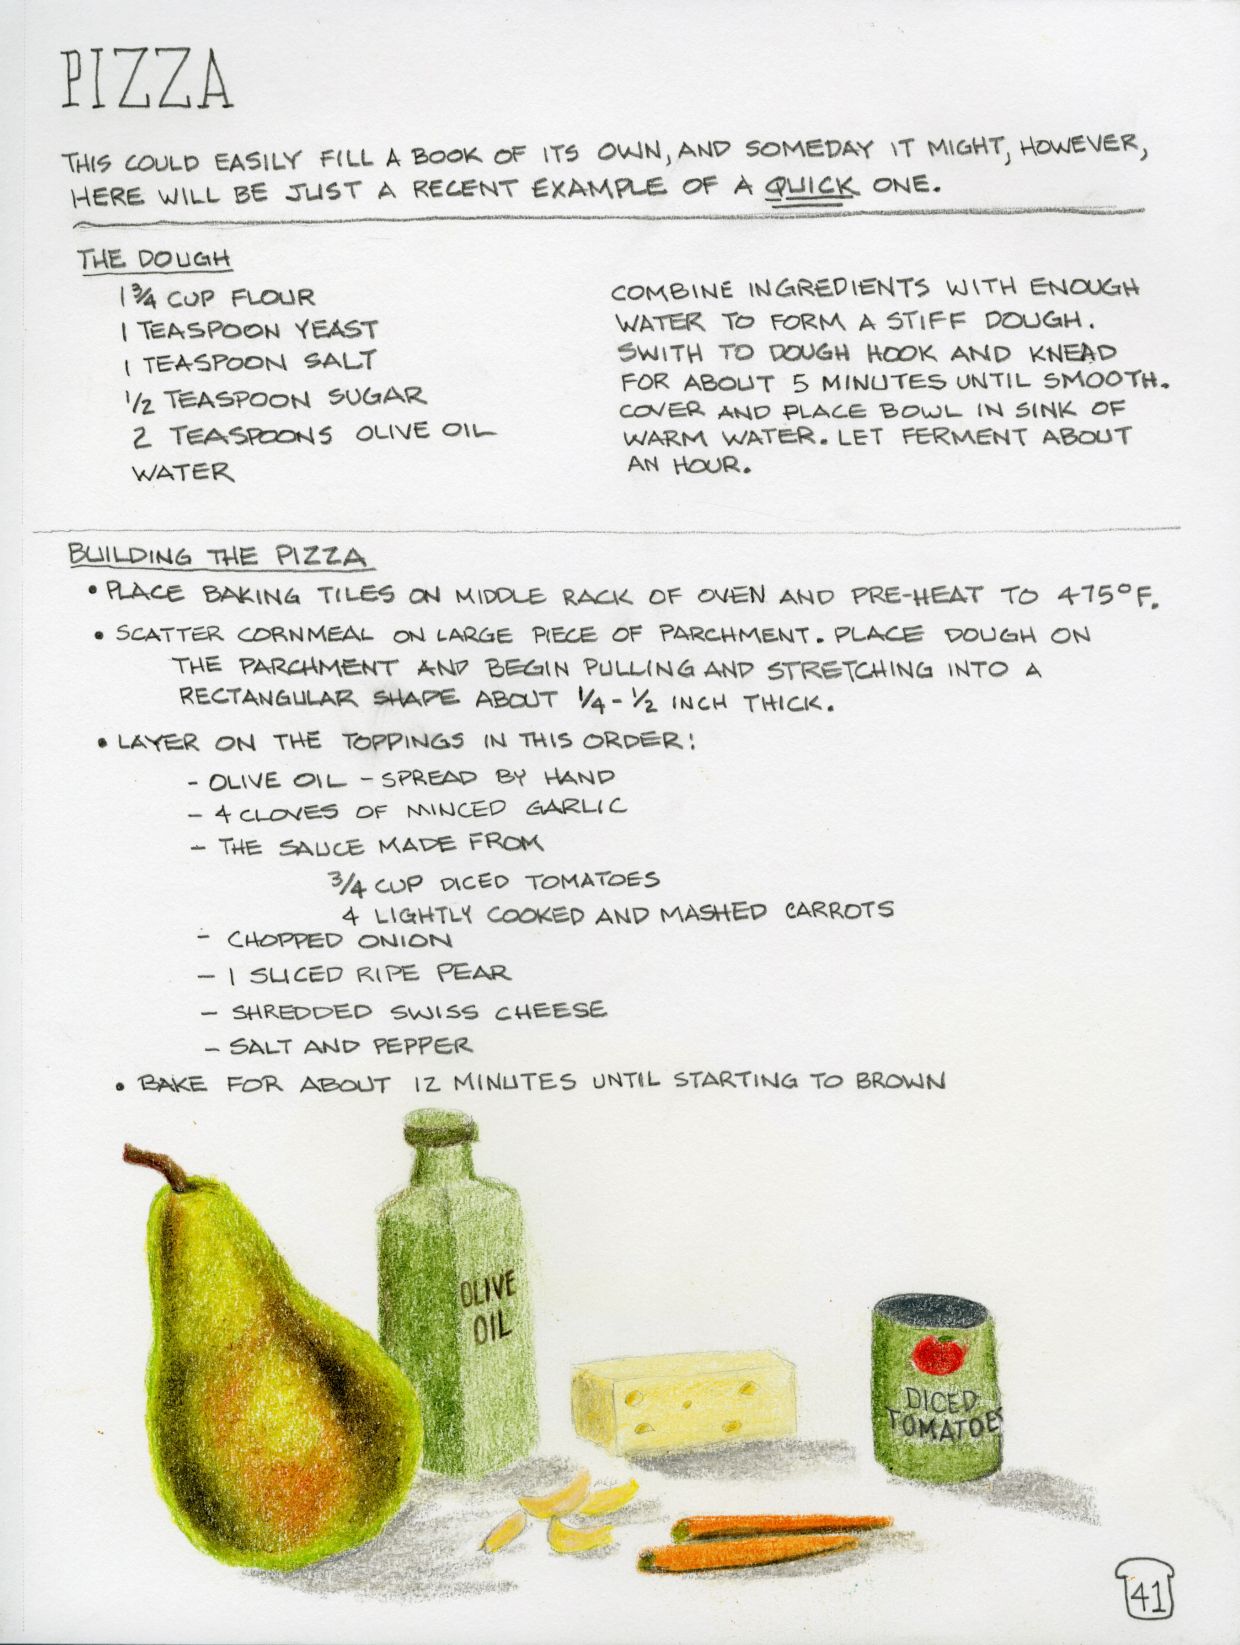 PIZZA
THIS COULD EASILY FILL A BOOK OF ITS OWN, AND SOMEDAY IT MIGHT, HOWEVER,
HERE WILL BE JUST A RECENT EXAMPLE OF A QUICK ONE.
THE DOUGH
1 3/4 CUP FLOUR
1 TEASPOON YEAST
1 TEASPOON SALT
1/2 TEASPOON SUGAR
2 TEASPOONS OLIVE OIL
WATER
COMBINE INGREDIENTS WITH ENOUGH
WATER TO FORM A STIFF DOUGH.
SWITH TO DOUGH HOOK AND KNEAD
FOR ABOUT 5 MINUTES UNTIL SMOOTH.
COVER AND PLACE BOWL IN SINK OF
WARM WATER. LET FERMENT ABOUT
AN HOUR.
BUILDING THE PIZZA
• PLACE BAKING TILES ON MIDDLE RACK OF OVEN AND PRE-HEAT TO 475°F.
• SCATTER CORNMEAL ON LARGE PIECE OF PARCHMENT. PLACE DOUGH ON
THE PARCHMENT AND BEGIN PULLING AND STRETCHING INTO A
RECTANGULAR SHAPE ABOUT 1/4 - 1/2 INCH THICK.
• LAYER ON THE TOPPINGS IN THIS ORDER:
- OLIVE OIL - SPREAD BY HAND
- 4 CLOVES OF MINCED GARLIC
- THE SAUCE MADE FROM
3/4 CUP DICED TOMATOES
4 LIGHTLY COOKED AND MASHED CARROTS
- CHOPPED ONION
- 1 SLICED RIPE PEAR
- SHREDDED SWISS CHEESE
- SALT AND PEPPER
• BAKE FOR ABOUT 12 MINUTES UNTIL STARTING TO BROWN
OLIVE
OIL
DICED
TOMATOES
41